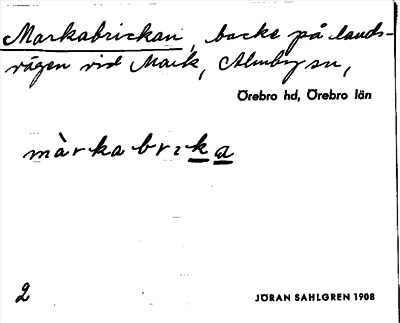 Markabrickan, backe på lands-
vägen vid Mark, Almby sn,
Örebro hd, Örebro län
màrkabrɩka
2
JÖRAN SAHLGREN 1908